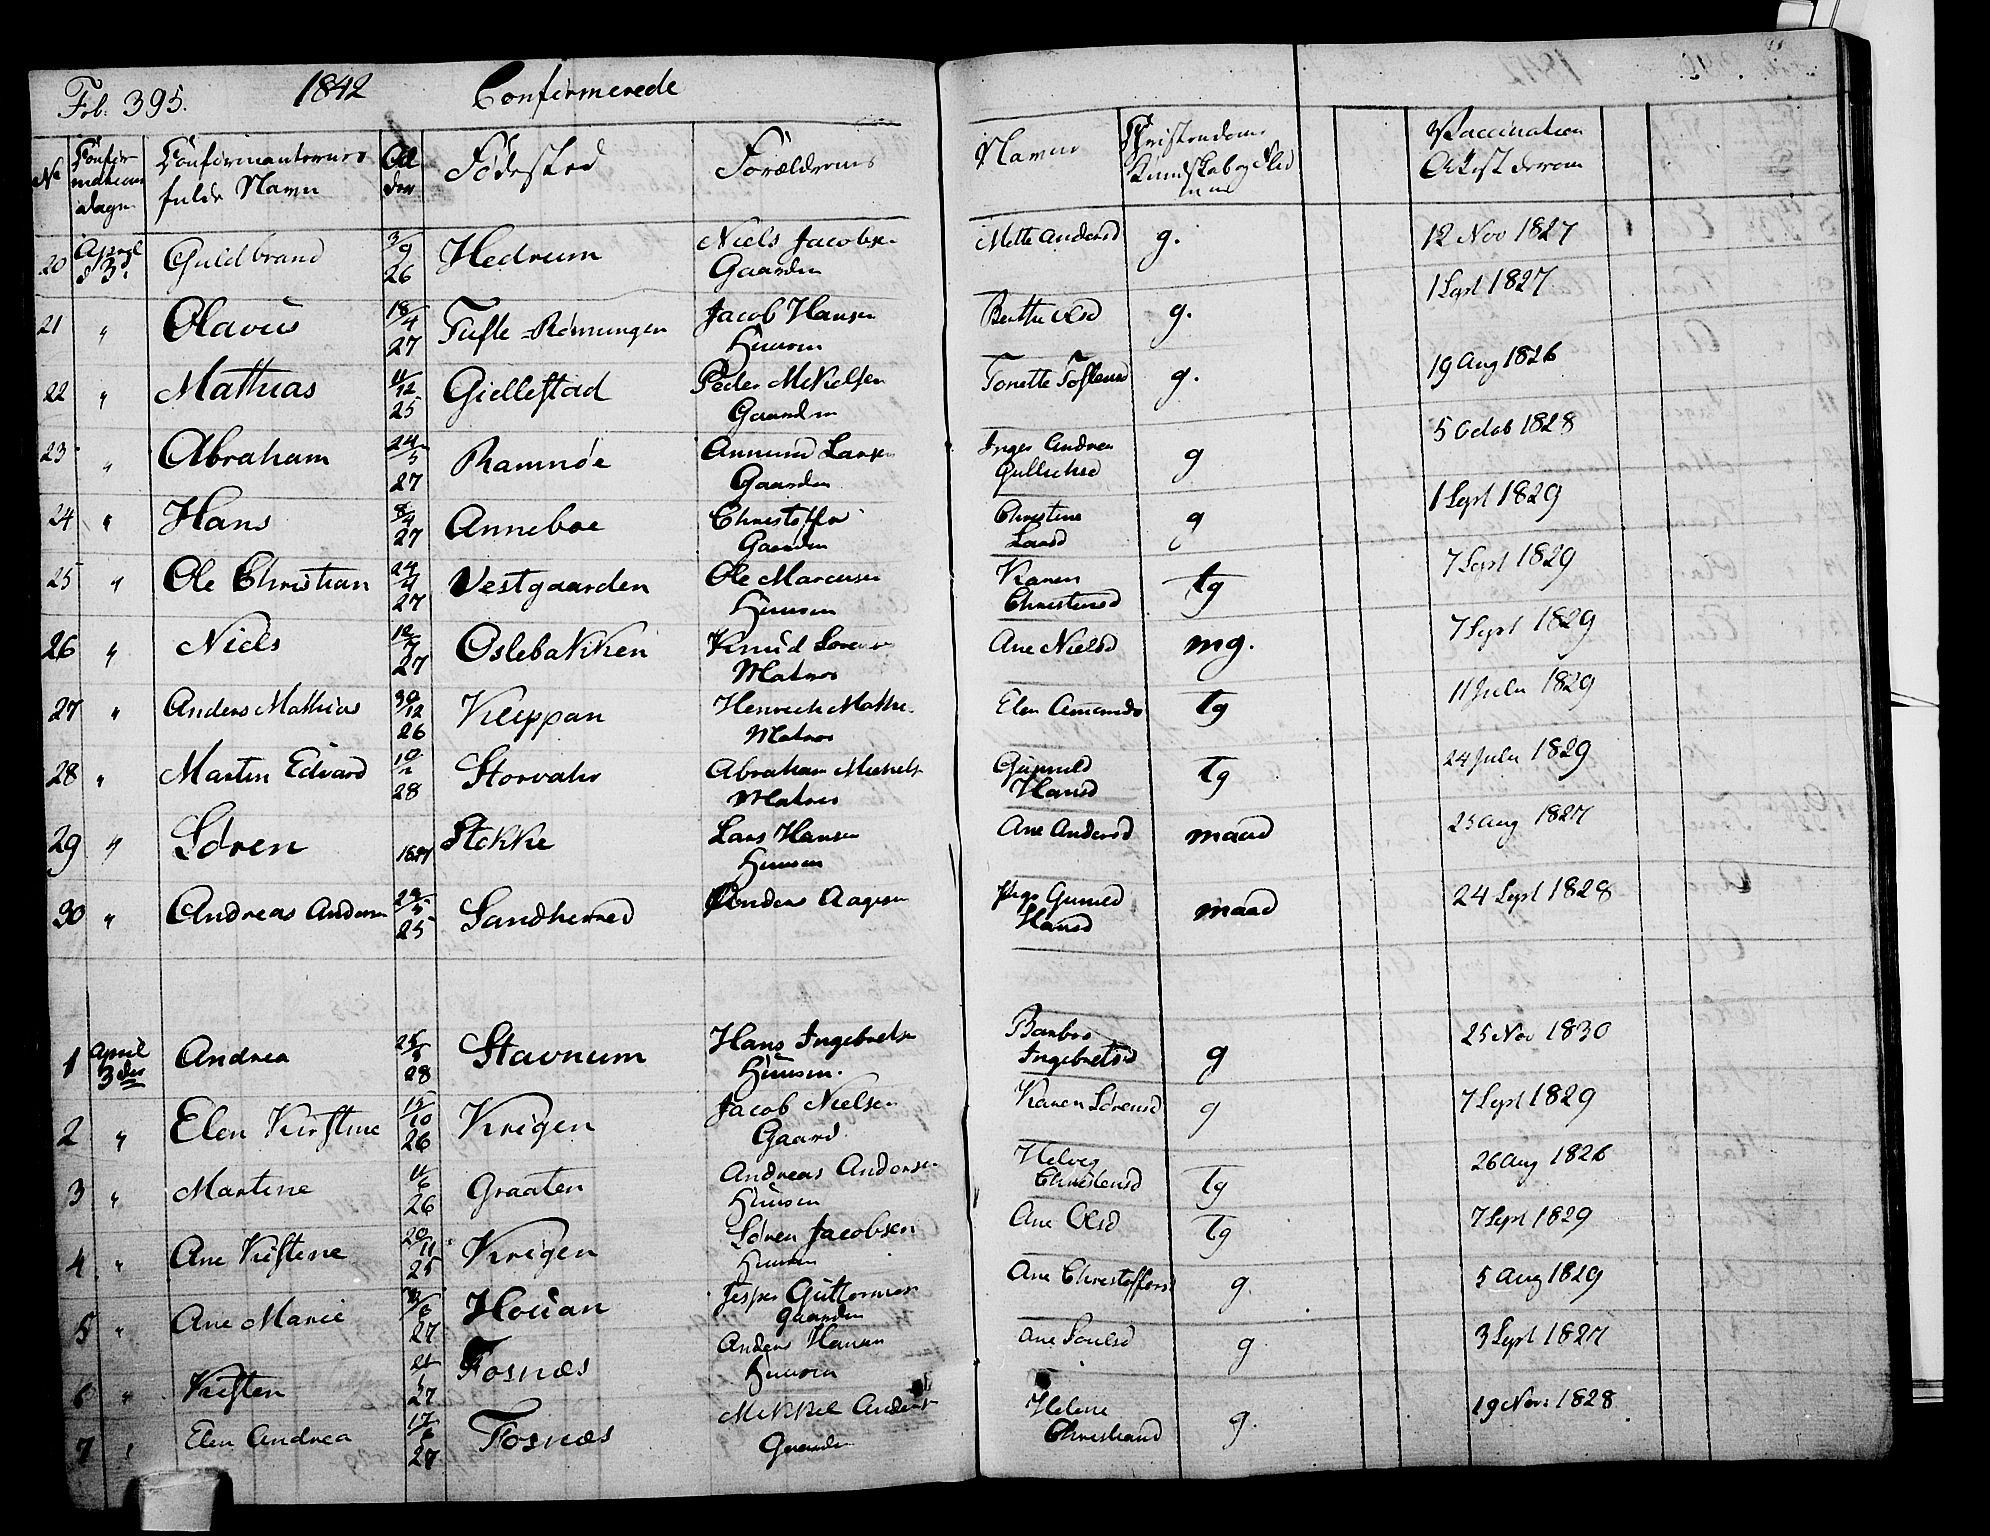 Fol. 395. 1842 Confirmerede
No Confir- mations dagen Confirmanternes fulde Navn Al der Fødested Forældrenes Navne Christendoms Kundskab og Flid Vaccination Attest derom
20 April d 3. Guldbrand 3/9 26 Hedrum Niels Jacobsen Gaarden Mette Andersd g. 12 Nov 1827
21 " Olavus 18/4 27 Tufte - Rømmingen Jacob Hansen Huusm Berthe Olsd g. 1 Sept 1827
22 " Mathias 11/12 25 Giellestad Peder Mikelsen Gaarden Tonette Toflensd g. 19 Aug 1826
23 " Abraham 24/5 27 Ramnøe Ammund Larsen Gaarden Inger Andrea Gullichsd g 5 Octob 1828
24 " Hans 8/4 27 Anneboe Christoffer Gaarden Christine Larsd g 1 Sept 1829
25 " Ole Christian 24/4 27 Vestgaarden Ole Marcusen Huusm Karen Christensd tg 7 Sept 1829
26 " Niels 12/7 27 Oslebakken Knud Sorens Matros Ane Nielsd mg. 7 Sept 1829
27 " Anders Mathias 30/12 26 Kleppan Henrich Mathi. Matros Elen Amunds tg 11 Julii 1829
28 " Martin Edvard 10/2 28 Storvahr Abraham Michels Matros Gunnild Hansd tg 24 Julii 1829
29 " Søren 1827 Stokke Lars Hansen Huusm Ane Andersd maad 25 Aug 1827
30 " Andreas Andersen 29/5 25 Sandherred Anders Aagesen Pige Gunild Hansd maad 24 Sept 1828
1 April 3die Andrea 25/3 28 Stavnum Hans Ingebretsen Huusm. Barbro Ingebretsd g 25 Nov 1830
2 " Elen Kirstine 15/10 26 Krigen Jacob Nielsen Gaard Karen Sørensd g 7 Sept 1829
3 " Martine 11/6 26 Graaten Andreas Andersen Huusm Helvig Christensd tg 26 Aug 1826
4 " Ane Kistine 20/11 25 Krigen Søren Jacobsen Huusm Ane Olsd tg 7 Sept 1829
5 " Ane Marie 27 Houan Jesper Guttormsen Gaarden Ane Christoffersd g. 5 Aug 1829
6 " Kirsten 27 Fosnæs Anders Hansen Huusm Ane Poulsd g 3 Sept 1827
7 " Elen Andrea 17/6 27 Fosnæs Mikkel Anders Gaarden Helene Christiansd g. 19 Nov. 1828